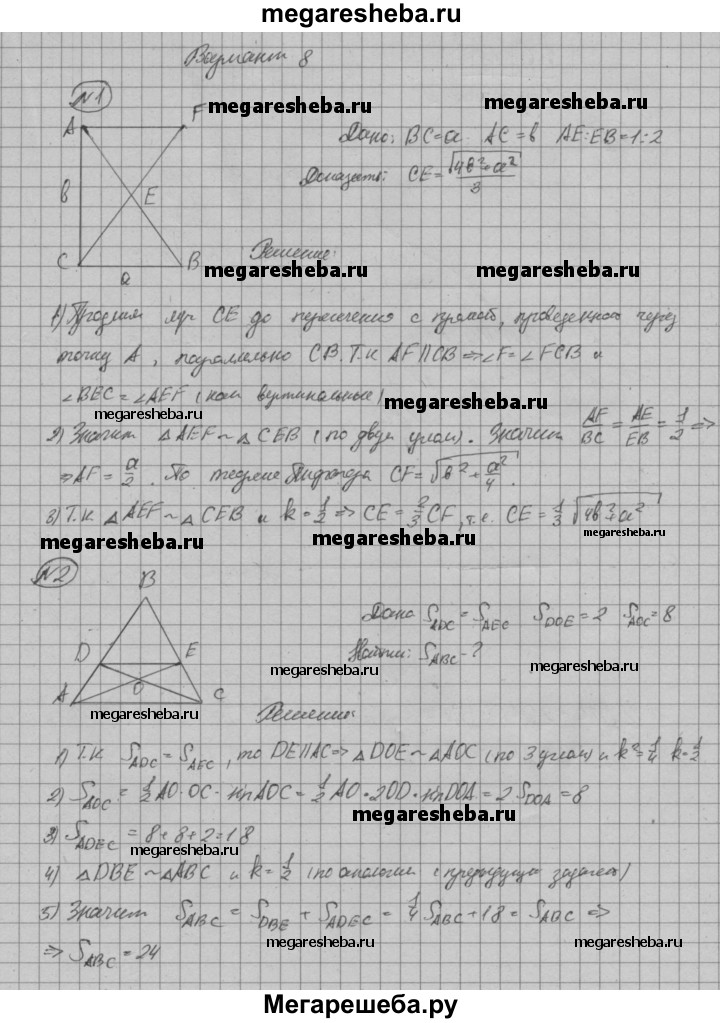 megaresheba.ru
Вариант 8
№1
megaresheba.ru
megaresheba.ru
A F
Дано: BC=a AC=b AE:EB=1:2
Доказать: CE=√(4b²+a²)/3
b E
C B
a
Решение:
megaresheba.ru
megaresheba.ru
1) Продлим CE до пересечения с прямой, проведенного через
точку A, параллельно CB. Т.к AF||CB ⇒ ∠F=∠FCB и
∠BEC=∠AEF (как вертикальные)
megaresheba.ru
megaresheba.ru
2) Значит △AEF~△CEB (по двум углам). Значит AF/BC = AE/EB = 1/2 ⇒
⇒ AF=a/2. По теореме Пифагора CF=√(b²+a²/4).
3) Т.к △AEF~△CEB и k=1/2 ⇒ CE=2/3CF, т.е. CE=1/3√(4b²+a²)
megaresheba.ru
megaresheba.ru
megaresheba.ru
№2
B
Дано S_ADC=S_AEC S_DOE=2 S_AOC=8
Найти: S_ABC-?
D E
megaresheba.ru
megaresheba.ru
O
A C
megaresheba.ru
Решение
1) Т.к S_ADC=S_AEC, то DE||AC ⇒ △DOE~△AOC (по 3 углам) и k²=1/4 k=1/2
2) S_AOC=1/2AO·OC· AOC=1/2AO·2OD· DOA=2S_DOA=8
megaresheba.ru
3) S_ADEC=8+8+2=18
megaresheba.ru
4) △DBE~△ABC и k=1/2 (по аналогии с предыдущей задачей)
5) Значит S_ABC=S_DBE+S_ADEC=1/4S_ABC+18=S_ABC ⇒
⇒ S_ABC=24
megaresheba.ru
megaresheba.ru
Мегарешеба.ру